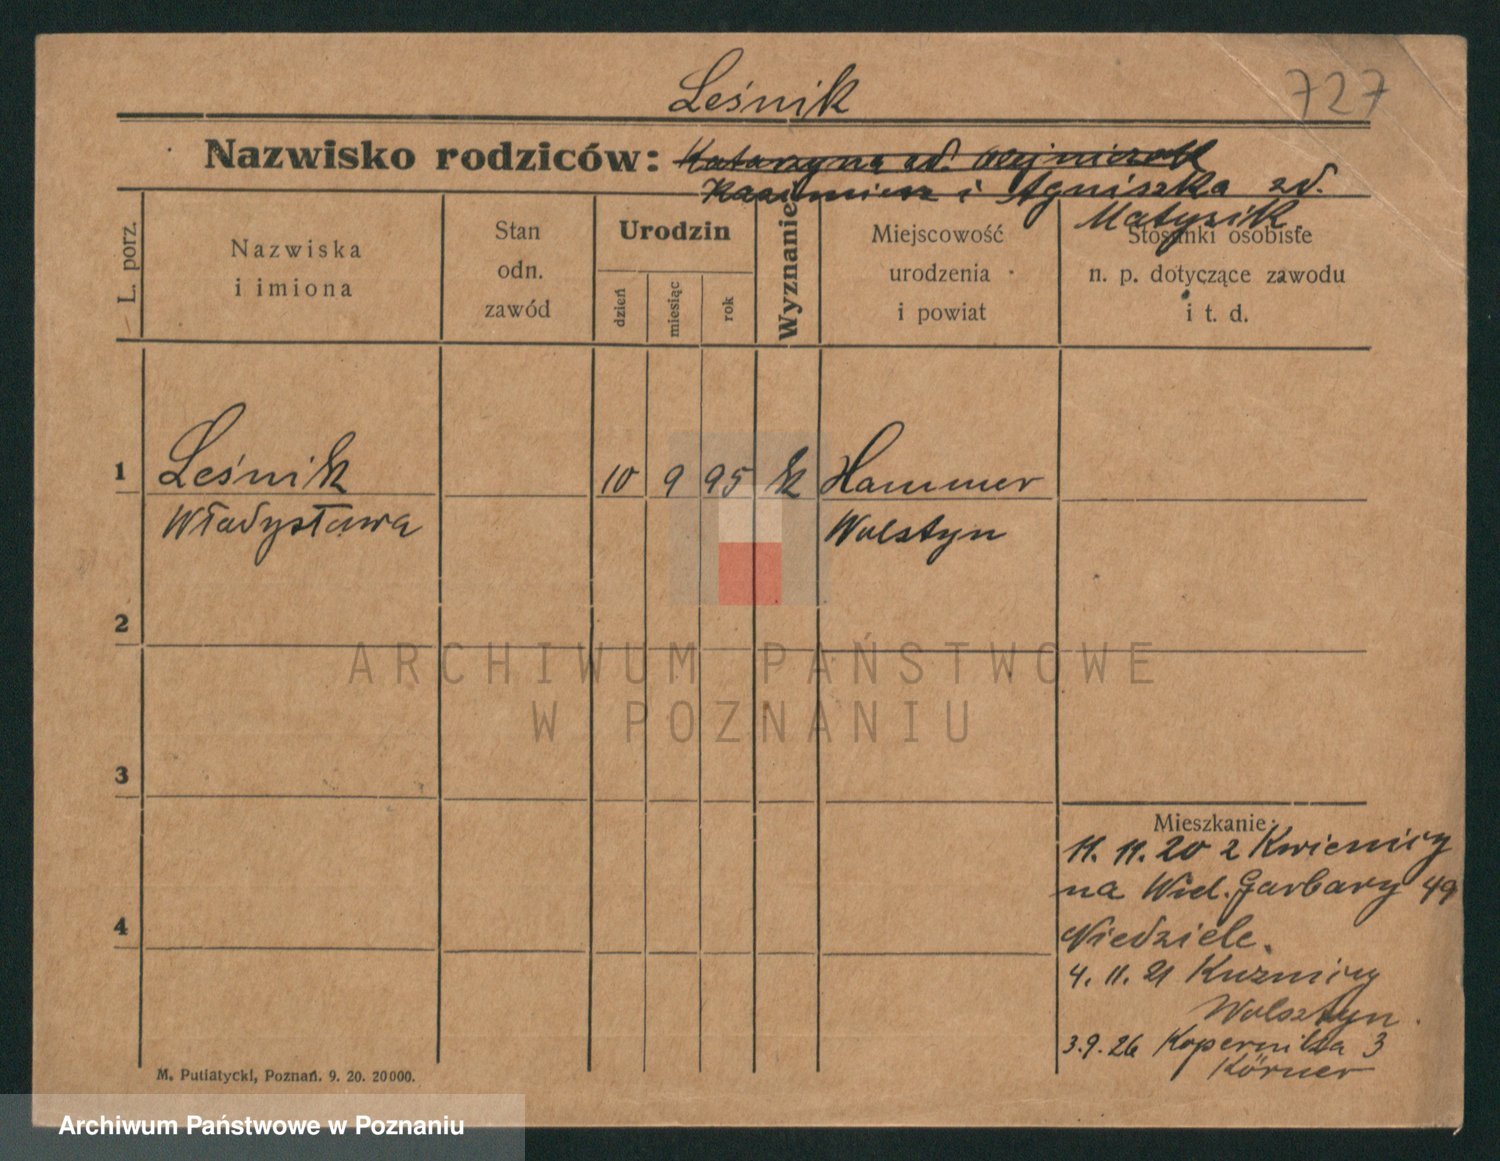 Leśnik
727
Nazwisko rodziców: Katarzyna zd.
Kazimierz i Agniszka zd.
Matysik
L. porz.
Nazwiska
i imiona
Stan
odn.
zawód
Urodzin
dzień
miesiąc
rok
Wyznanie
Miejscowość
urodzenia
i powiat
Stosunki osobiste
n. p. dotyczące zawodu
i t. d.
1 Leśnik 10 9 95 k Hammer
Władysława Wolstyn
2
3
Mieszkanie:
11. 11. 20 z Kwienicy
na Wiel. Garbary 49
Niedziele.
4
4. 11. 21 Kuźnicy
Wolsztyn.
3. 9. 26 Kopernika 3
Körner
M. Putiatycki, Poznań. 9. 20. 20000.
ARCHIWUM PAŃSTWOWE
W POZNANIU
Archiwum Państwowe w Poznaniu